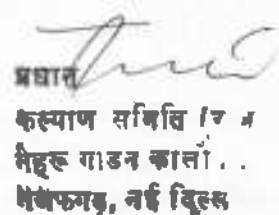 प्रधान
कल्याण समिति
नेहरू गार्डन कालो..
नजफगढ़, नई दिल्ल